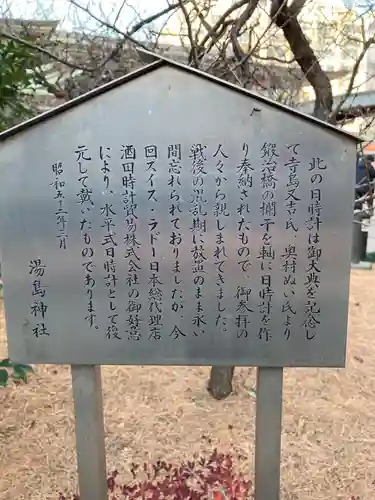 此の日時計は御大典を記念し
て寺島又吉氏、奥村ぬい氏より
鍛冶橋の欄干を軸に日時計を作
り奉納されたもので、御参拝の
人々から親しまれてきました。
戦後の混乱期に放置のまま永い
間忘れられておりましたが、今
回スイス・ラドー日本総代理店
酒田時計貿易株式会社の御好意
により、水平式日時計として復
元して戴いたものであります。
昭和五十三年二月
湯島神社